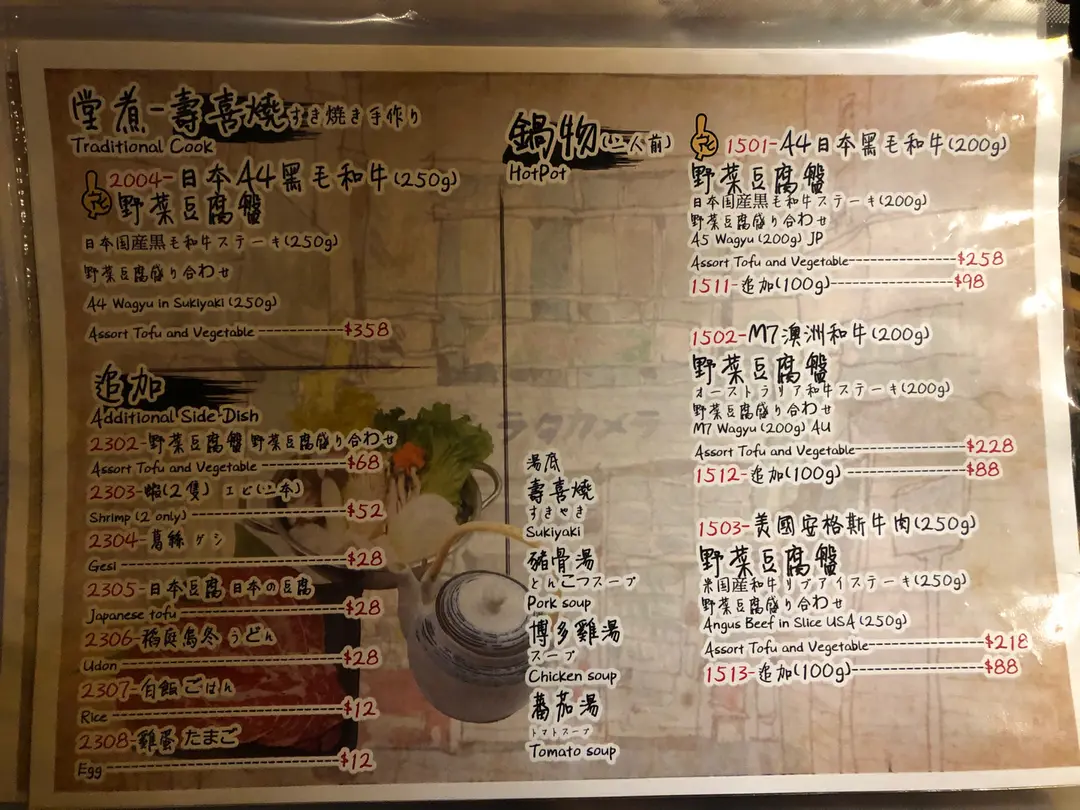 堂煮-壽喜燒すき焼き手作り
Traditional Cook
2004-日本A4黑毛和牛(250g)
野菜豆腐盤
日本国産黒毛和牛ステーキ(250g)
野菜豆腐盛り合わせ
A4 Wagyu in Sukiyaki (250g)
Assort Tofu and Vegetable -----------$358
追加
Additional Side Dish
2302-野菜豆腐盤 野菜豆腐盛り合わせ
Assort Tofu and Vegetable -----------$68
2303-蝦(2隻) エビ(二本)
Shrimp (2 only)--------------------$52
2304-葛絲 ゲシ
Gesi ------------------------------$28
2305-日本豆腐 日本の豆腐
Japanese tofu ---------------------$28
2306-稲庭烏冬 うどん
Udon ------------------------------$28
2307-白飯 ごはん
Rice ------------------------------$12
2308-雞蛋 たまご
Egg--------------------------------$12
鍋物(二人前)
HotPot
ラタカメラ
湯底
壽喜燒
すきやき
Sukiyaki
豬骨湯
とんこつスープ
Pork soup
博多雞湯
スープ
Chicken soup
蕃茄湯
トマトスープ
Tomato soup
1501-A4日本黑毛和牛(200g)
野菜豆腐盤
日本国産黒毛和牛ステーキ(200g)
野菜豆腐盛り合わせ
A5 Wagyu (200g) JP
Assort Tofu and Vegetable--------------$258
1511-追加(100g)----------------$98
1502-M7澳洲和牛(200g)
野菜豆腐盤
オーストラリア和牛ステーキ(200g)
野菜豆腐盛り合わせ
M7 Wagyu (200g) AU
Assort Tofu and Vegetable--------------$228
1512-追加(100g)----------------$88
1503-美國安格斯牛肉(250g)
野菜豆腐盤
米国産和牛リブアイステーキ(250g)
野菜豆腐盛り合わせ
Angus Beef in Slice USA (250g)
Assort Tofu and Vegetable--------------$218
1513-追加(100g)-----------------$88